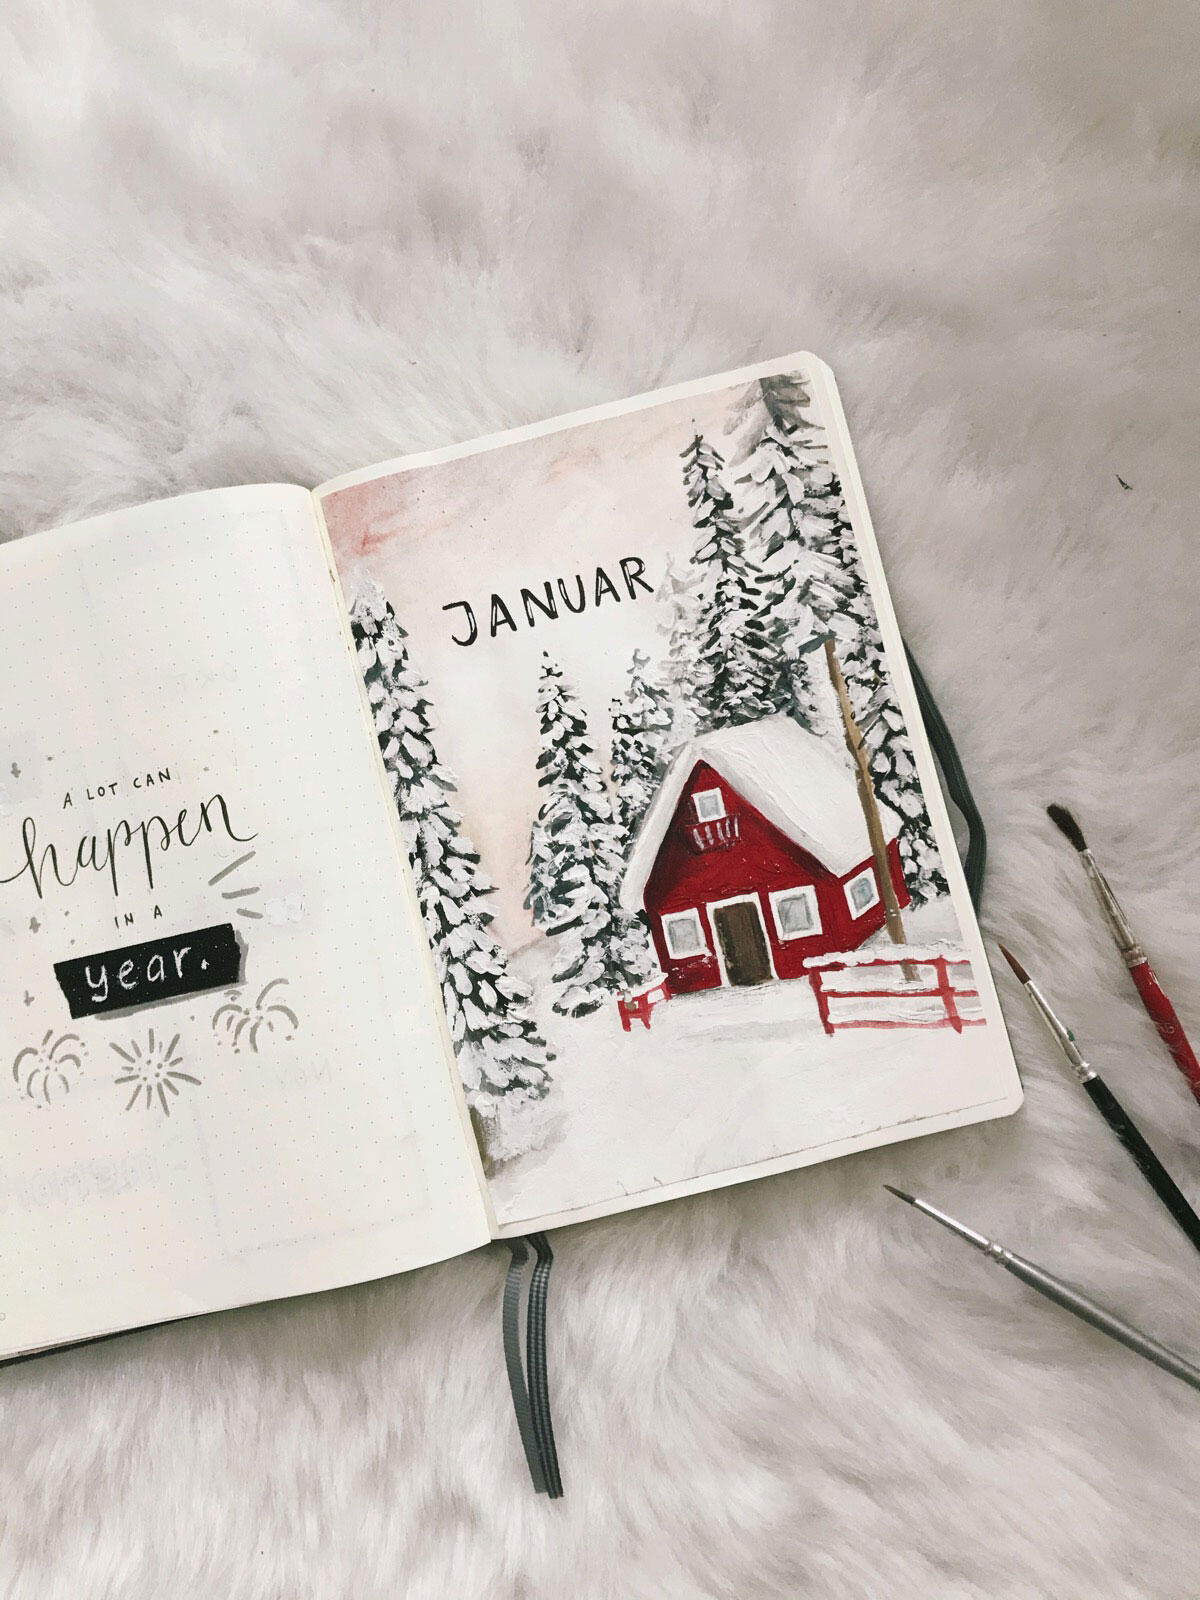 A LOT CAN
happen
IN A
year.
JANUAR